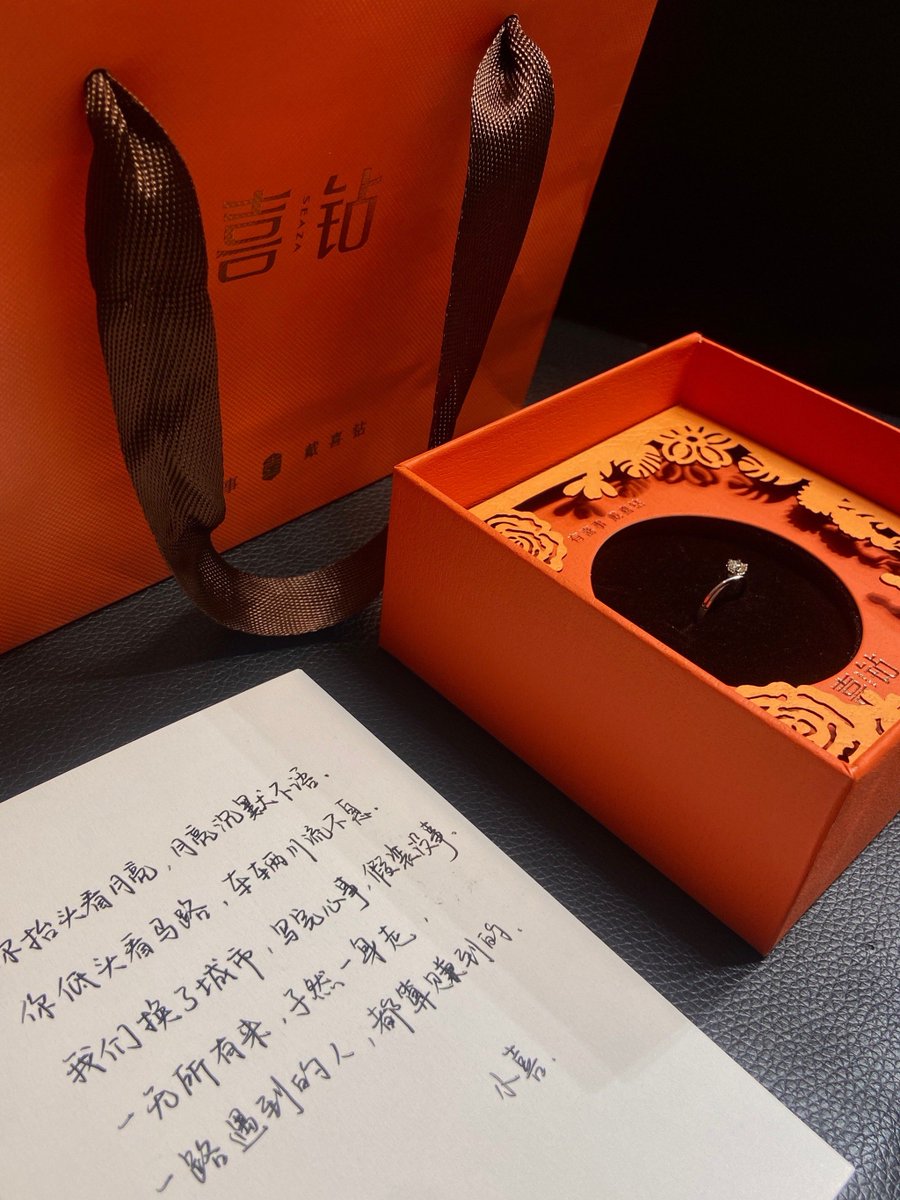 喜钻
SEAZA
事 戴喜钻
有喜事 戴喜钻
喜钻
你抬头看月亮，月亮沉默不语．
你低头看马路，车辆川流不息．
我们换了城市，写完心事，假装没事．
一无所有来，孑然一身走，
一路遇到的人，都算赚到的．
小喜．